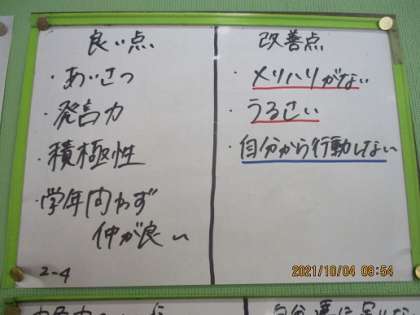 良い点
・あいさつ
・発言力
・積極性
・学年問わず
仲が良い
改善点
・メリハリがない
・うるさい
・自分から行動しない
2-4
2021/10/04 09:54